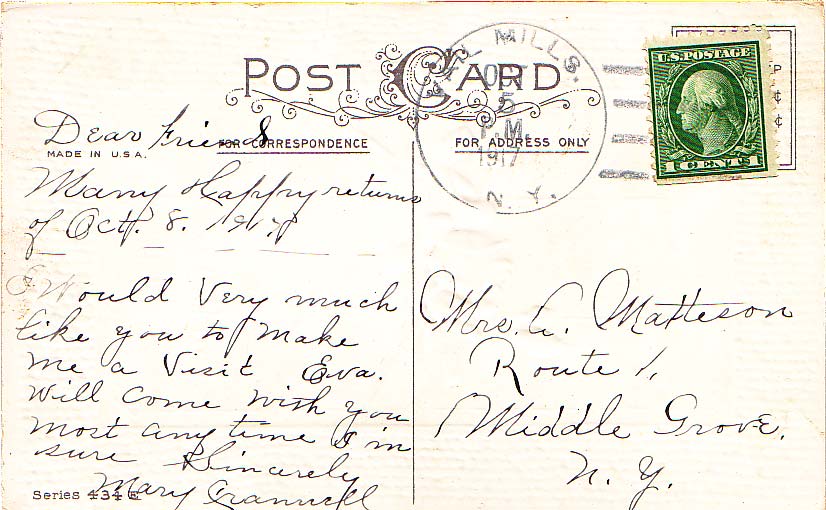 POST CARD
MILLS.
OCT
5
P.M.
1917
N. Y.
U.S. POSTAGE
1 CENT 1
Dear Friend
FOR CORRESPONDENCE
FOR ADDRESS ONLY
MADE IN U.S.A.
Many Happy returns
of Oct. 8. 1917
Would Very much
like you to make
me a Visit Eva.
Will Come with you
most any time I'm
sure Sincerely
Mary
Series 434 E
Mrs. A. Matteson
Route 1,
Middle Grove,
N. Y.